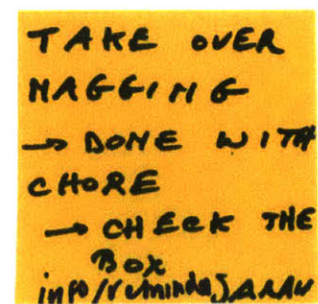 TAKE OVER
NAGGING
→ DONE WITH
CHORE
→ CHECK THE
BOX
info/reminder